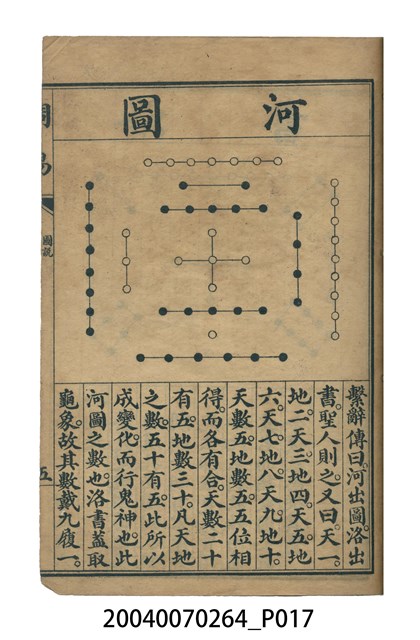 河圖
繫辭傳曰河出圖洛出
書聖人則之又曰天一
地二天三地四天五地
六天七地八天九地十
天數五地數五五位相
得而各有合天數二十
有五地數三十凡天地
之數五十有五此所以
成變化而行鬼神也此
河圖之數也洛書蓋取
龜象故其數戴九履一
周易
圖說
五
20040070264_P017